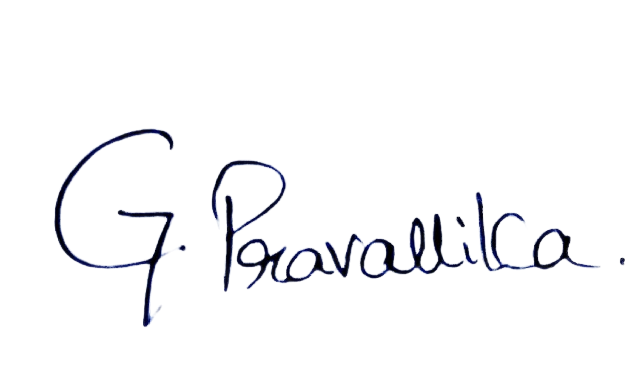 G. Pravallika.